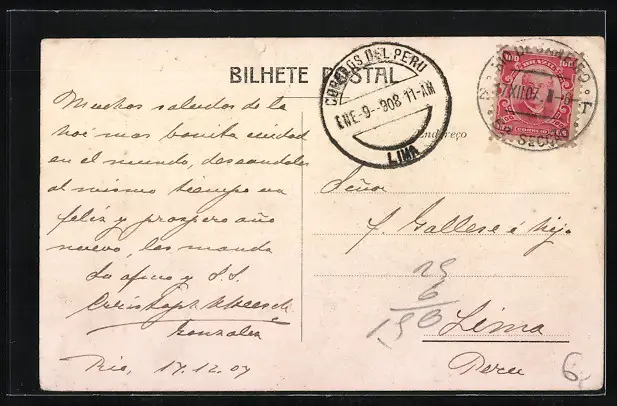 BILHETE POSTAL
CORREOS DEL PERU
ENE-9-908 11-AM
LIMA
100 100
BRAZIL
CORREIO
17XII07
SECÇÃO
Endereço
Muchos saludos de la
mas bonita ciudad
en el mundo, deseandoles
al mismo tiempo un
feliz y prospero año
nuevo, les manda
Su afmo y S.S.
Gonzales
Rio, 17.12.07
Señor
J. Gallese é hijo
Lima
Peru
6